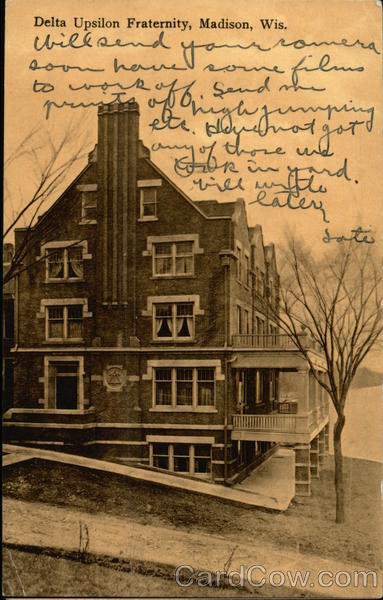 Delta Upsilon Fraternity, Madison, Wis.
Will send your camera
soon have some films
to work off. Send me
prints of high jumping
etc. Have not got
any of those we
took in yard.
Will write
later
CardCow.com